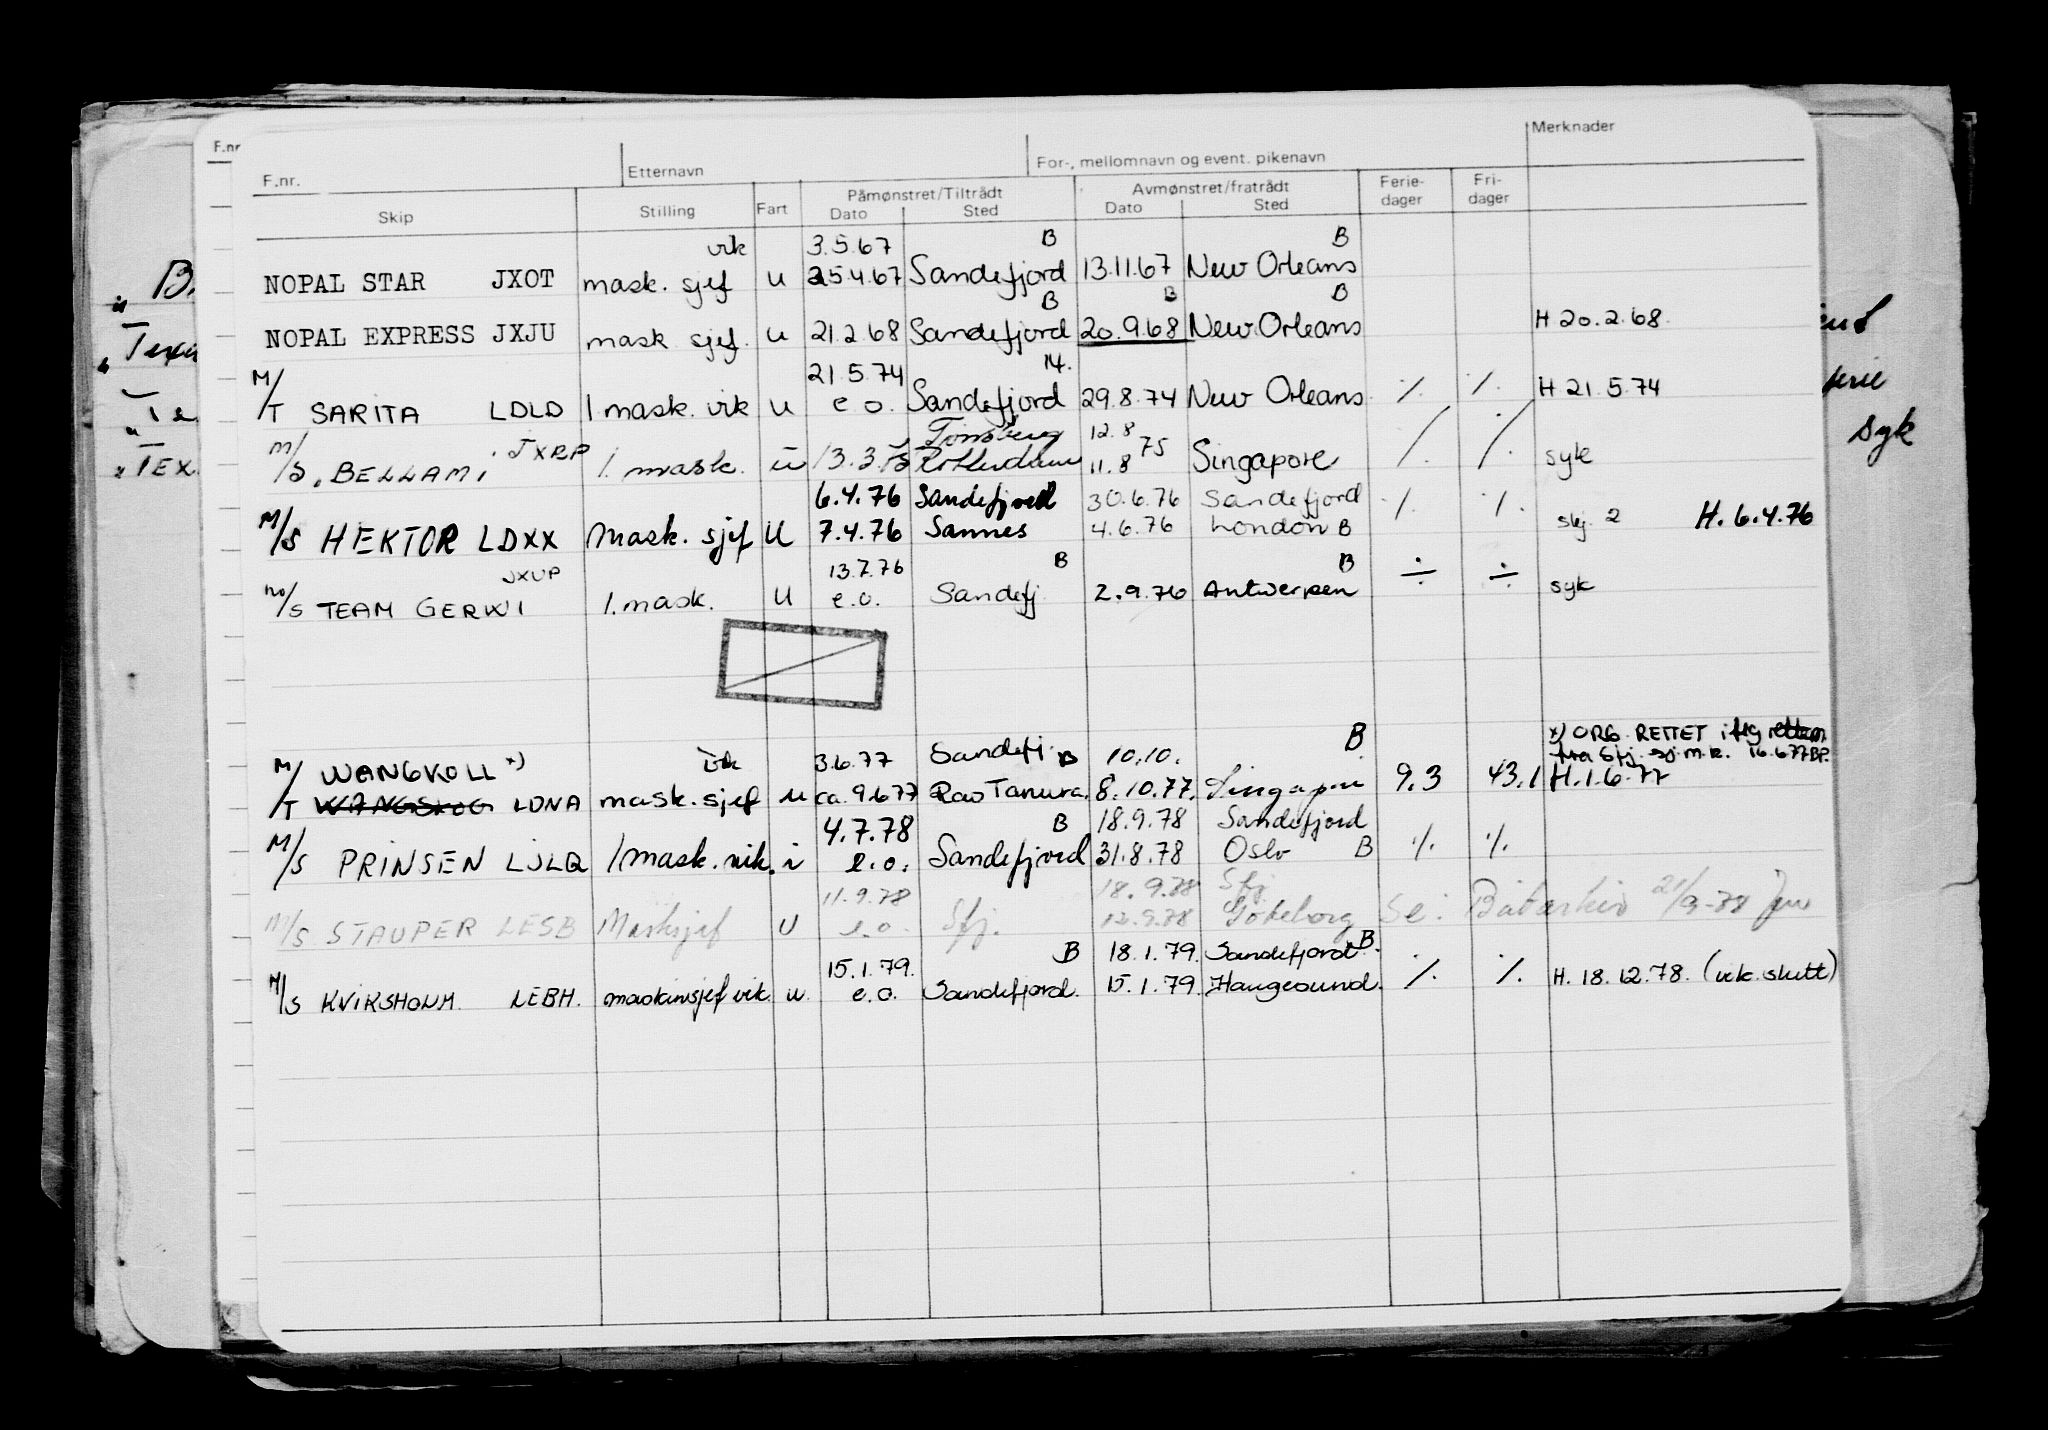 Merknader
F.nr
F.nr. Etternavn For-, mellomnavn og event. pikenavn
Påmønstret/Tiltrådt Avmønstret/fratrådt Ferie- Fri-
Skip Stilling Fart Dato Sted Dato Sted dager dager
vik 3.5.67 B B
NOPAL STAR JXOT mask. sjef u 25.4.67 Sandefjord 13.11.67 New Orleans
B B B
NOPAL EXPRESS JXJU mask sjef. u 21.2.68 Sandefjord 20.9.68 New Orleans H 20.2.68.
21.5.74 14.
M/T SARITA LDLD 1 mask. vik u e.o. Sandefjord 29.8.74 New Orleans ./. ./. H 21.5.74
JXRP Tønsberg 12.8
M/S. BELLAMI 1. mask. u 13.3.75 Rotterdam 11.8 75 Singapore ./. ./. syk
6.4.76 Sandefjord 30.6.76 Sandefjord ./. ./.
M/S HEKTOR LDXX Mask. sjef U 7.4.76 Sannes 4.6.76 London B skj. 2 H. 6.4.76
JXUP 13.7.76 B B
M/S TEAM GERWI 1. mask. U e.o. Sandefj 2.9.76 Antwerpen ÷ ÷ syk
x) ORG. RETTET i
B fra Sfj. sj.m.k. 16.677BP.
M/T WANGKOLL x) vik 3.6.77 Sandefj. B 10.10.
WANGSKOG LDNA mask. sjef u ca. 9.677 Ras Tanura. 8.10.77. Singapore 9.3 43.1 H.1.6.77
4.7.78 B 18.9.78 Sandefjord
M/S PRINSEN LJLQ 1 mask. vik. i e.o. Sandefjord 31.8.78 Oslo B ./. ./.
11.9.78 18.9.78 Sfj
M/S STAUPER LESB Masksjef U e.o. Sfj. 12.9.78 Göteborg Se: Båtarkiv 21/9-78
15.1.79. B 18.1.79. Sandefjord B.
M/S KVIKSHOLM. LEBH. maskinsjef vik. u. e.o. Sandefjord. 15.1.79. Haugesund. ./. ./. H. 18.12.78. (vik. slutt)
syk